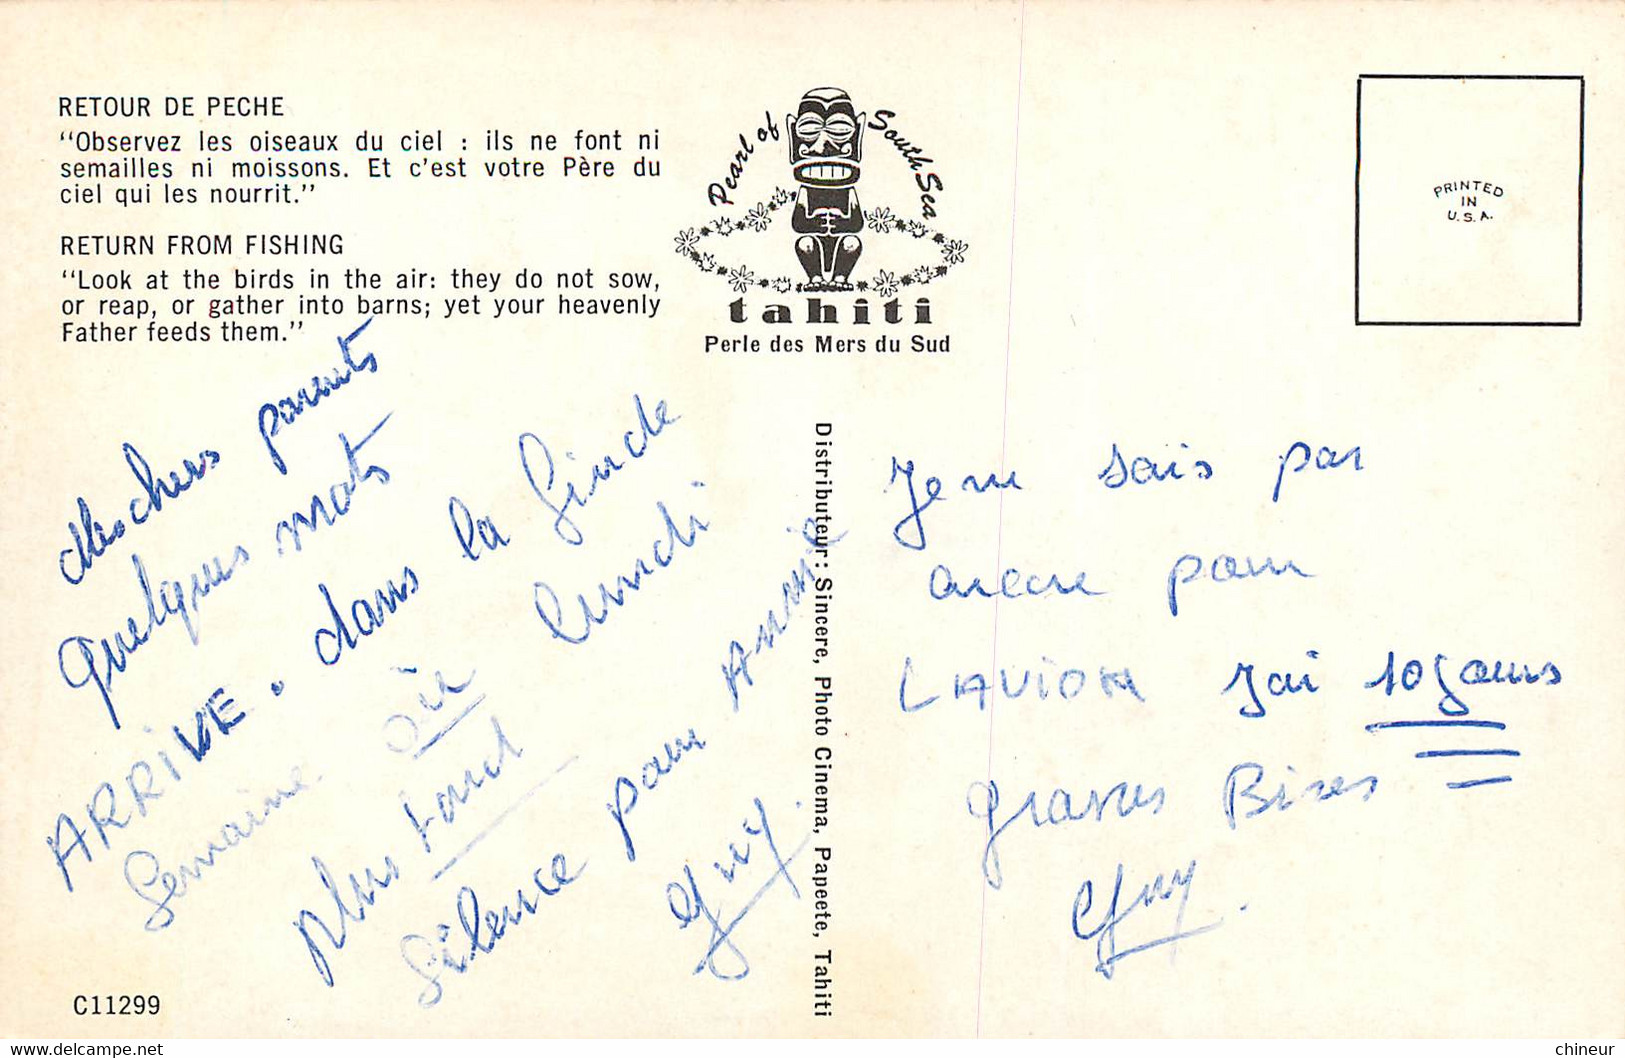 RETOUR DE PECHE
“Observez les oiseaux du ciel : ils ne font ni
semailles ni moissons. Et c'est votre Père du
ciel qui les nourrit.”
RETURN FROM FISHING
“Look at the birds in the air: they do not sow,
or reap, or gather into barns; yet your heavenly
Father feeds them.”
Pearl of South Sea
tahiti
Perle des Mers du Sud
PRINTED
IN
U.S.A.
chers parents
quelques mots
ARRIVE. dans la fin de
Semaine ou lundi
plus tard
Silence pour Annie
Guy.
Distributeur: Sincere, Photo Cinema, Papeete, Tahiti
Je ne sais pas
encore pour
LAVION Jai 10 Jours
Grasses Bises
Guy.
C11299
chineur